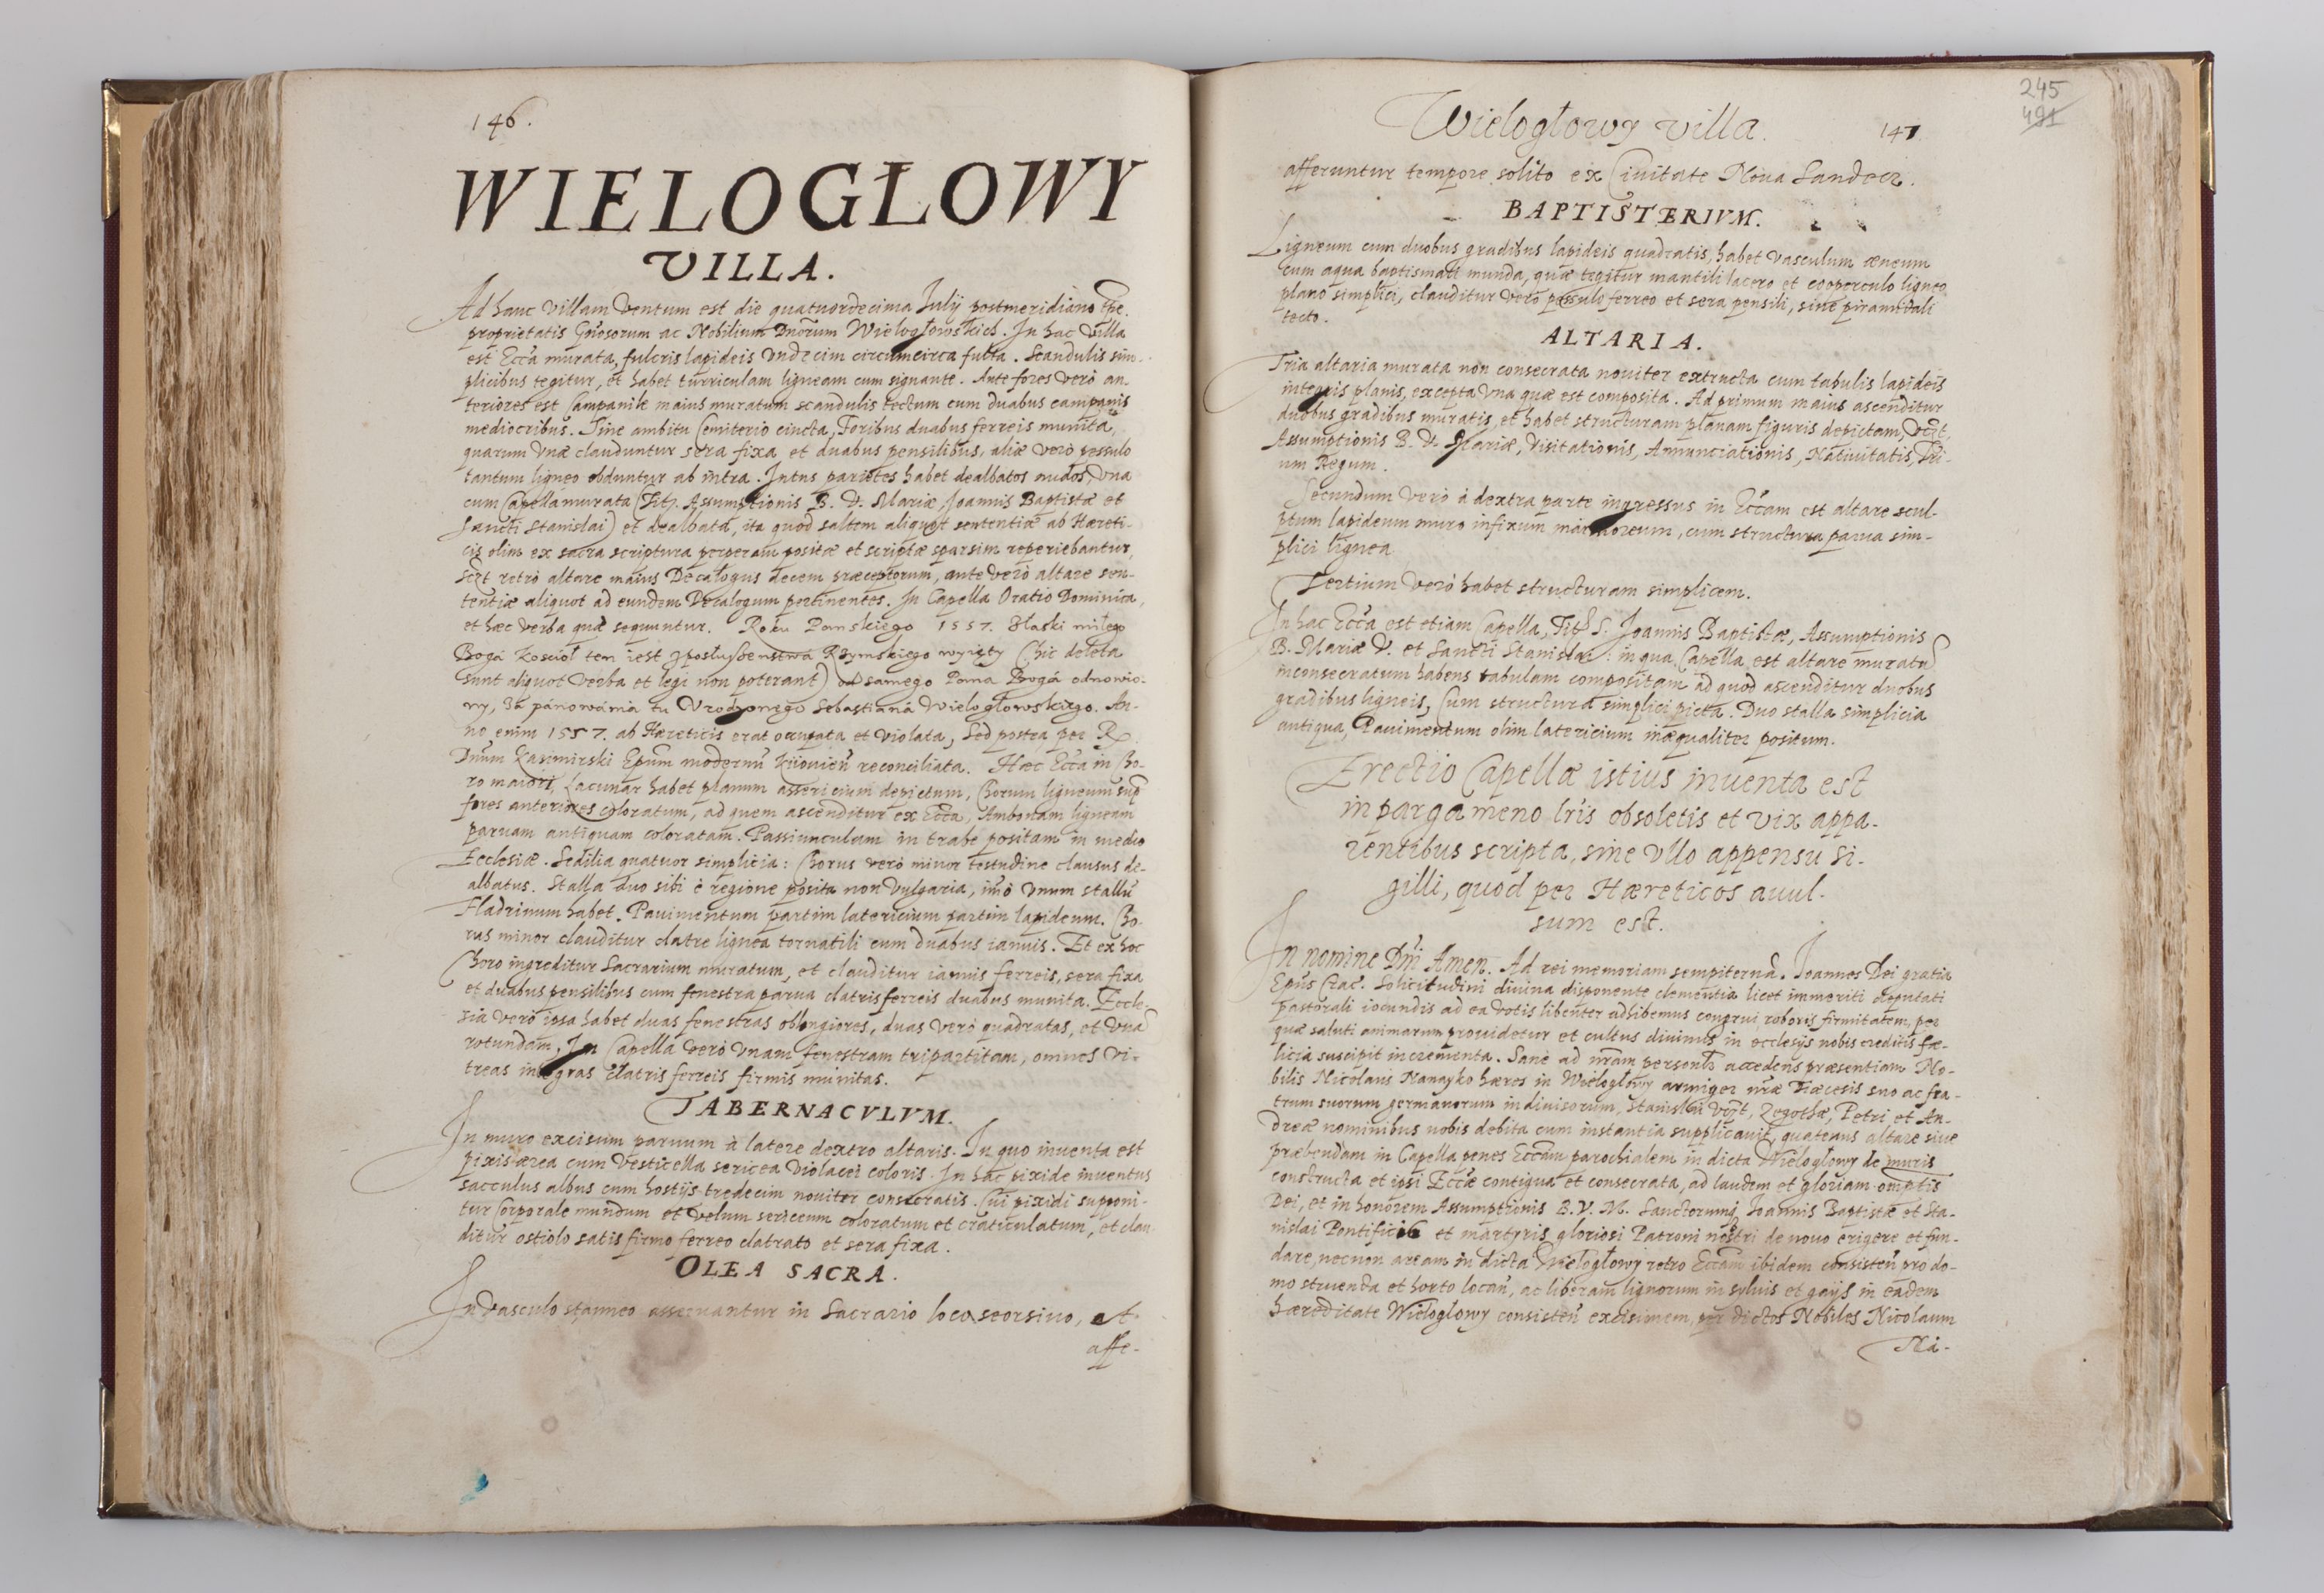 146.
WIELOGŁOWY
VILLA.
Ad hanc villam ventum est die quatuordecima Julij postmeridiano tpe.
proprietatis Gnosorum ac Nobilium Dnorum Wielogłowskich. In hac villa
est Ecca murata, fulcris lapideis vndecim circumcirca fulta. Scandulis sim-
plicibus tegitur, et habet turriculam ligneam cum signante. Ante fores verò an-
teriores est Campanile maius muratum scandulis tectum cum duabus campanis
mediocribus. Sine ambitu Cemiterio cincta, Foribus duabus ferreis munita,
quarum vnæ clauduntur sera fixa et duabus pensilibus, aliæ verò pessulo
tantum ligneo obduntur ab intra. Intus parietes habet dealbatos nudos, vna
cum Capella murata (Tit. Assumptionis B. V. Mariæ, Joannis Baptistæ et
Sancti Stanislai) et dealbata, ita quod saltem aliquot sententiæ ab Hæreti-
cis olim ex sacra scriptura perperam positæ et scriptæ sparsim reperiebantur,
sczt retrò altare maius Decalogus decem præceptorum, ante verò altare sen-
tentiæ aliquot ad eundem Decalogum pertinentes. In Capella Oratio Dominica,
et hæc verba quæ sequuntur. Roku Panskiego 1557. Z łaski miłego
Bogá koscioł ten iest z posłuszenstwa Rzymskiego wyięty (hic deleta
sunt aliquot verba et legi non poterant) od samego Pana Bogá odnowio-
ny, zá pánowánia tu Vrodzonego Sebastianá Wielogłowskiego. An-
no enim 1557. ab Hæreticis erat occupata et violata, sed postea per R.
Dnum Kazimirski Epum modernu Kiiouien reconciliata. Hæc Ecca in Cho-
ro maiori, Lacunar habet planum assericium depictum, Chorum ligneum sup
fores anteriores coloratum, ad quem ascenditur ex Ecca, Ambonam ligneam
paruam antiquam coloratam. Passiunculam in trabe positam in medio
Ecclesiæ. Sedilia quatuor simplicia: Chorus verò minor testudine clausus de-
albatus. Stalla duo sibi è regione posita non vulgaria, imò vnum stallu
Fladrinum habet. Pauimentum partim latericium partim lapideum. Cho-
rus minor clauditur clatre lignea tornatili cum duabus ianuis. Et ex hoc
Choro ingreditur Sacrarium muratum, et clauditur ianuis ferreis, sera fixa
et duabus pensilibus cum fenestra parua clatris ferreis duabus munita. Eccle-
sia verò ipsa habet duas fenestras oblongiores, duas verò quadratas, et vna
rotundam, In Capella verò vnam fenestram tripartitam, omnes vi-
treas integras clatris ferreis firmis munitas.
TABERNACVLVM.
In muro excisum paruum à latere dextro altaris. In quo inventa est
pixis ærea cum vesticella sericea violacei coloris. In hac pixide inventus
sacculus albus cum hostijs tredecim noviter consecratis. Cui pixidi supponi-
tur Corporale mundum et velum sericeum coloratum et craticulatum, et clau-
ditur ostiolo satis firmo ferreo clatrato et sera fixa.
OLEA SACRA.
In vasculo stanneo asseruantur in Sacrario loco seorsiuo, et
affe-
245
491
Wielogłowy villa. 147
afferuntur tempore solito ex Ciuitate Noua Sandecz.
BAPTISTERIVM.
Ligneum cum duobus gradibus lapideis quadratis, habet vasculum æneum
cum aqua baptismali munda, quæ tegitur mantili lacero et cooperculo ligneo
plano simplici, clauditur verò pessulo ferreo et sera pensili, sine piramidali
tecto.
ALTARIA.
Tria altaria murata non consecrata noviter extructa cum tabulis lapideis
integris planis, excepta vna quæ est composita. Ad primum maius ascenditur
duobus gradibus muratis, et habet structuram planam figuris depictam, vczt,
Assumptionis B. V. Mariæ, Visitationis, Annunciationis, Natiuitatis, Tri-
um Regum.
Secundum verò à dextra parte ingressus in Eccam est altare scul-
ptum lapideum muro infixum marmoreum, cum structura parua sim-
plici lignea
Tertium verò habet structuram simplicem.
In hac Ecca est etiam Capella, Tit. S. Joannis Baptistæ, Assumptionis
B. Mariæ V. et Sancti Stanislai: in qua Capella est altare muratu
inconsecratum habens tabulam compositam ad quod ascenditur duobus
gradibus ligneis, Cum structura simplici picta. Duo stalla simplicia
antiqua, Pauimentum olim latericium inæqualiter positum.
Erectio Capellæ istius inuenta est
in pargameno lris obsoletis et vix appa-
rentibus scripta, sine vllo appensu Si-
gilli, quod per Hæreticos auul-
sum est.
In nomine Dni Amen. Ad rei memoriam sempiterna. Joannes Dei gratia
Epus Crac. Solicitudini diuina disponente clementia licet immeriti deputati
pastorali iocundis ad ea votis libenter adhibemus congrui roboris firmitatem, per
quæ saluti animarum prouidetur et cultus diuinus in ecclesijs nobis creditis fæ-
licia suscipit incrementa. Sanè ad nram personlr accedens præsentiam No-
bilis Nicolaus Nanayko hæres in Wielogłowy armiger nræ diæcesis suo ac fra-
trum suorum germanorum indiuisorum, Stanislai vczt, Zegothæ, Petri et An-
dreæ nominibus nobis debita cum instantia supplicauit, quatenus altare siue
præbendam in Capella penes Eccam parochialem in dicta Wielogłowy de muris
constructa et ipsi Eccæ contigua et consecrata, ad laudem et gloriam omptis
Dei, et in honorem Assumptionis B. V. M. Sanctorumq Joannis Baptistæ et Sta-
nislai Pontificis et martyris gloriosi Patroni nostri de nouo erigere et fun-
dare, necnon aream in dicta Wielogłowy retro Eccam ibidem consisten pro do-
mo struenda et horto locan, ac liberam lignorum in syluis et gaijs in eadem
hæreditate Wielogłowy consisten excisimem, per dictos Nobiles Nicolaum
Na-